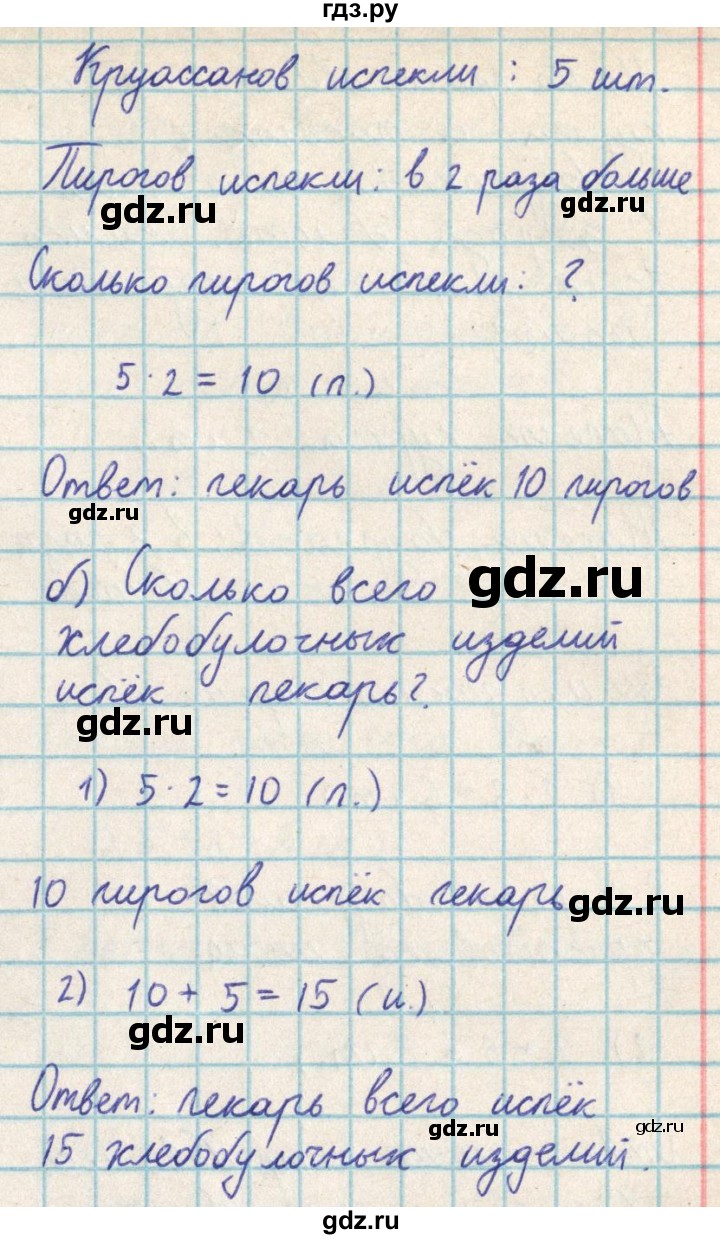 гдз.ру
Круассанов испекли: 5 шт.
Пирогов испекли: в 2 раза больше
gdz.ru
gdz.ru
Сколько пирогов испекли: ?
5 · 2 = 10 (п.)
Ответ: пекарь испёк 10 пирогов
gdz.ru
б) Сколько всего
gdz.ru
хлебобулочных изделий
испёк пекарь?
gdz.ru
1) 5 · 2 = 10 (п.)
10 пирогов испёк пекарь
gdz.ru
2) 10 + 5 = 15 (и.)
gdz.ru
Ответ: пекарь всего испёк
gdz.ru
gdz.ru
15 хлебобулочных изделий.
gdz.ru